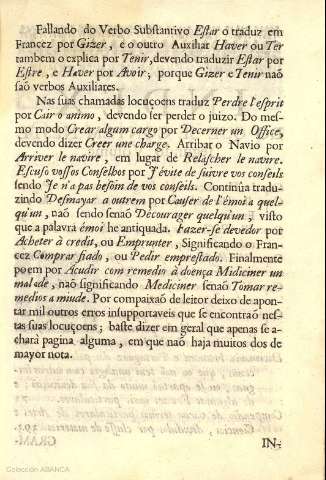 Fallando do Verbo Substantivo Estar o traduz em
Francez por Gizer, e o outro Auxiliar Haver ou Ter
tambem o explica por Tenir, devendo traduzir Estar por
Estre, e Haver por Avoir; porque Gizer e Tenir naõ
saõ verbos Auxiliares.
Nas suas chamadas locuçoens traduz Perdre l'esprit
por Cair o animo, devendo ser perder o juizo. Do mes-
mo modo Crear algum cargo por Decerner un Office,
devendo dizer Creer une charge. Arribar o Navio por
Arriver le navire, em lugar de Relascher le navire.
Escuso vossos Conselhos por J'évite de suivre vos conseils
sendo Je n'a pas besoim de vos conseils. Continúa tradu-
zindo Desmayar a outrem por Causer de l'émoi a quel-
qu'un, naõ sendo senaõ Décourager quelqu'un, visto
que a palavra émoi he antiquada. Fazer-se devedor por
Acheter à credit, ou Emprunter, Significando o Fran-
cez Comprar fiado, ou Pedir emprestado. Finalmente
poem por Acudir com remedio à doença Mediciner un
malade, naõ significando Mediciner senaõ Tomar re-
medios a miude. Por compaixaõ de leitor deixo de apon-
tar mil outros erros insupportaveis que se encontraõ nes-
tas suas locuçoens; baste dizer em geral que apenas se a-
chará pagina alguma, em que naõ haja muitos dos de
mayor nota.
IN-
Colección ABANCA